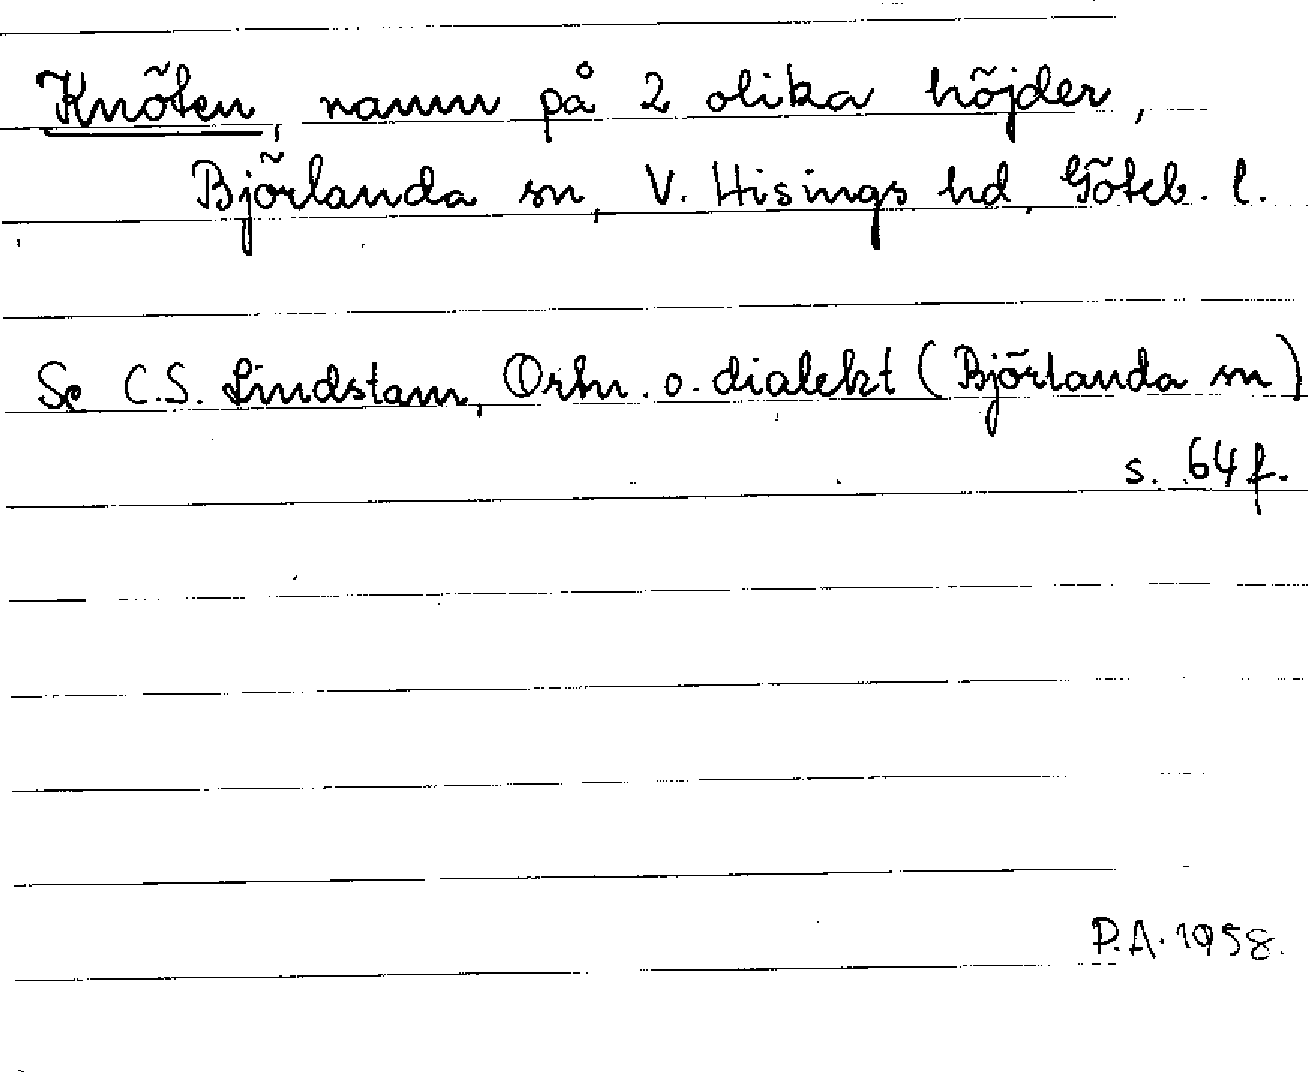 Knöten, namn på 2 olika höjder,
Björlanda sn, V. Hisings hd, Göteb. l.
Se C.S. Lindstam, Ortn. o. dialekt (Björlanda sn)
s. 64 f.
P.A. 1958.